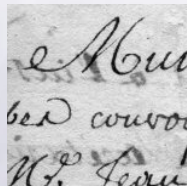 e Mun
bes couvo
Mr. Jean